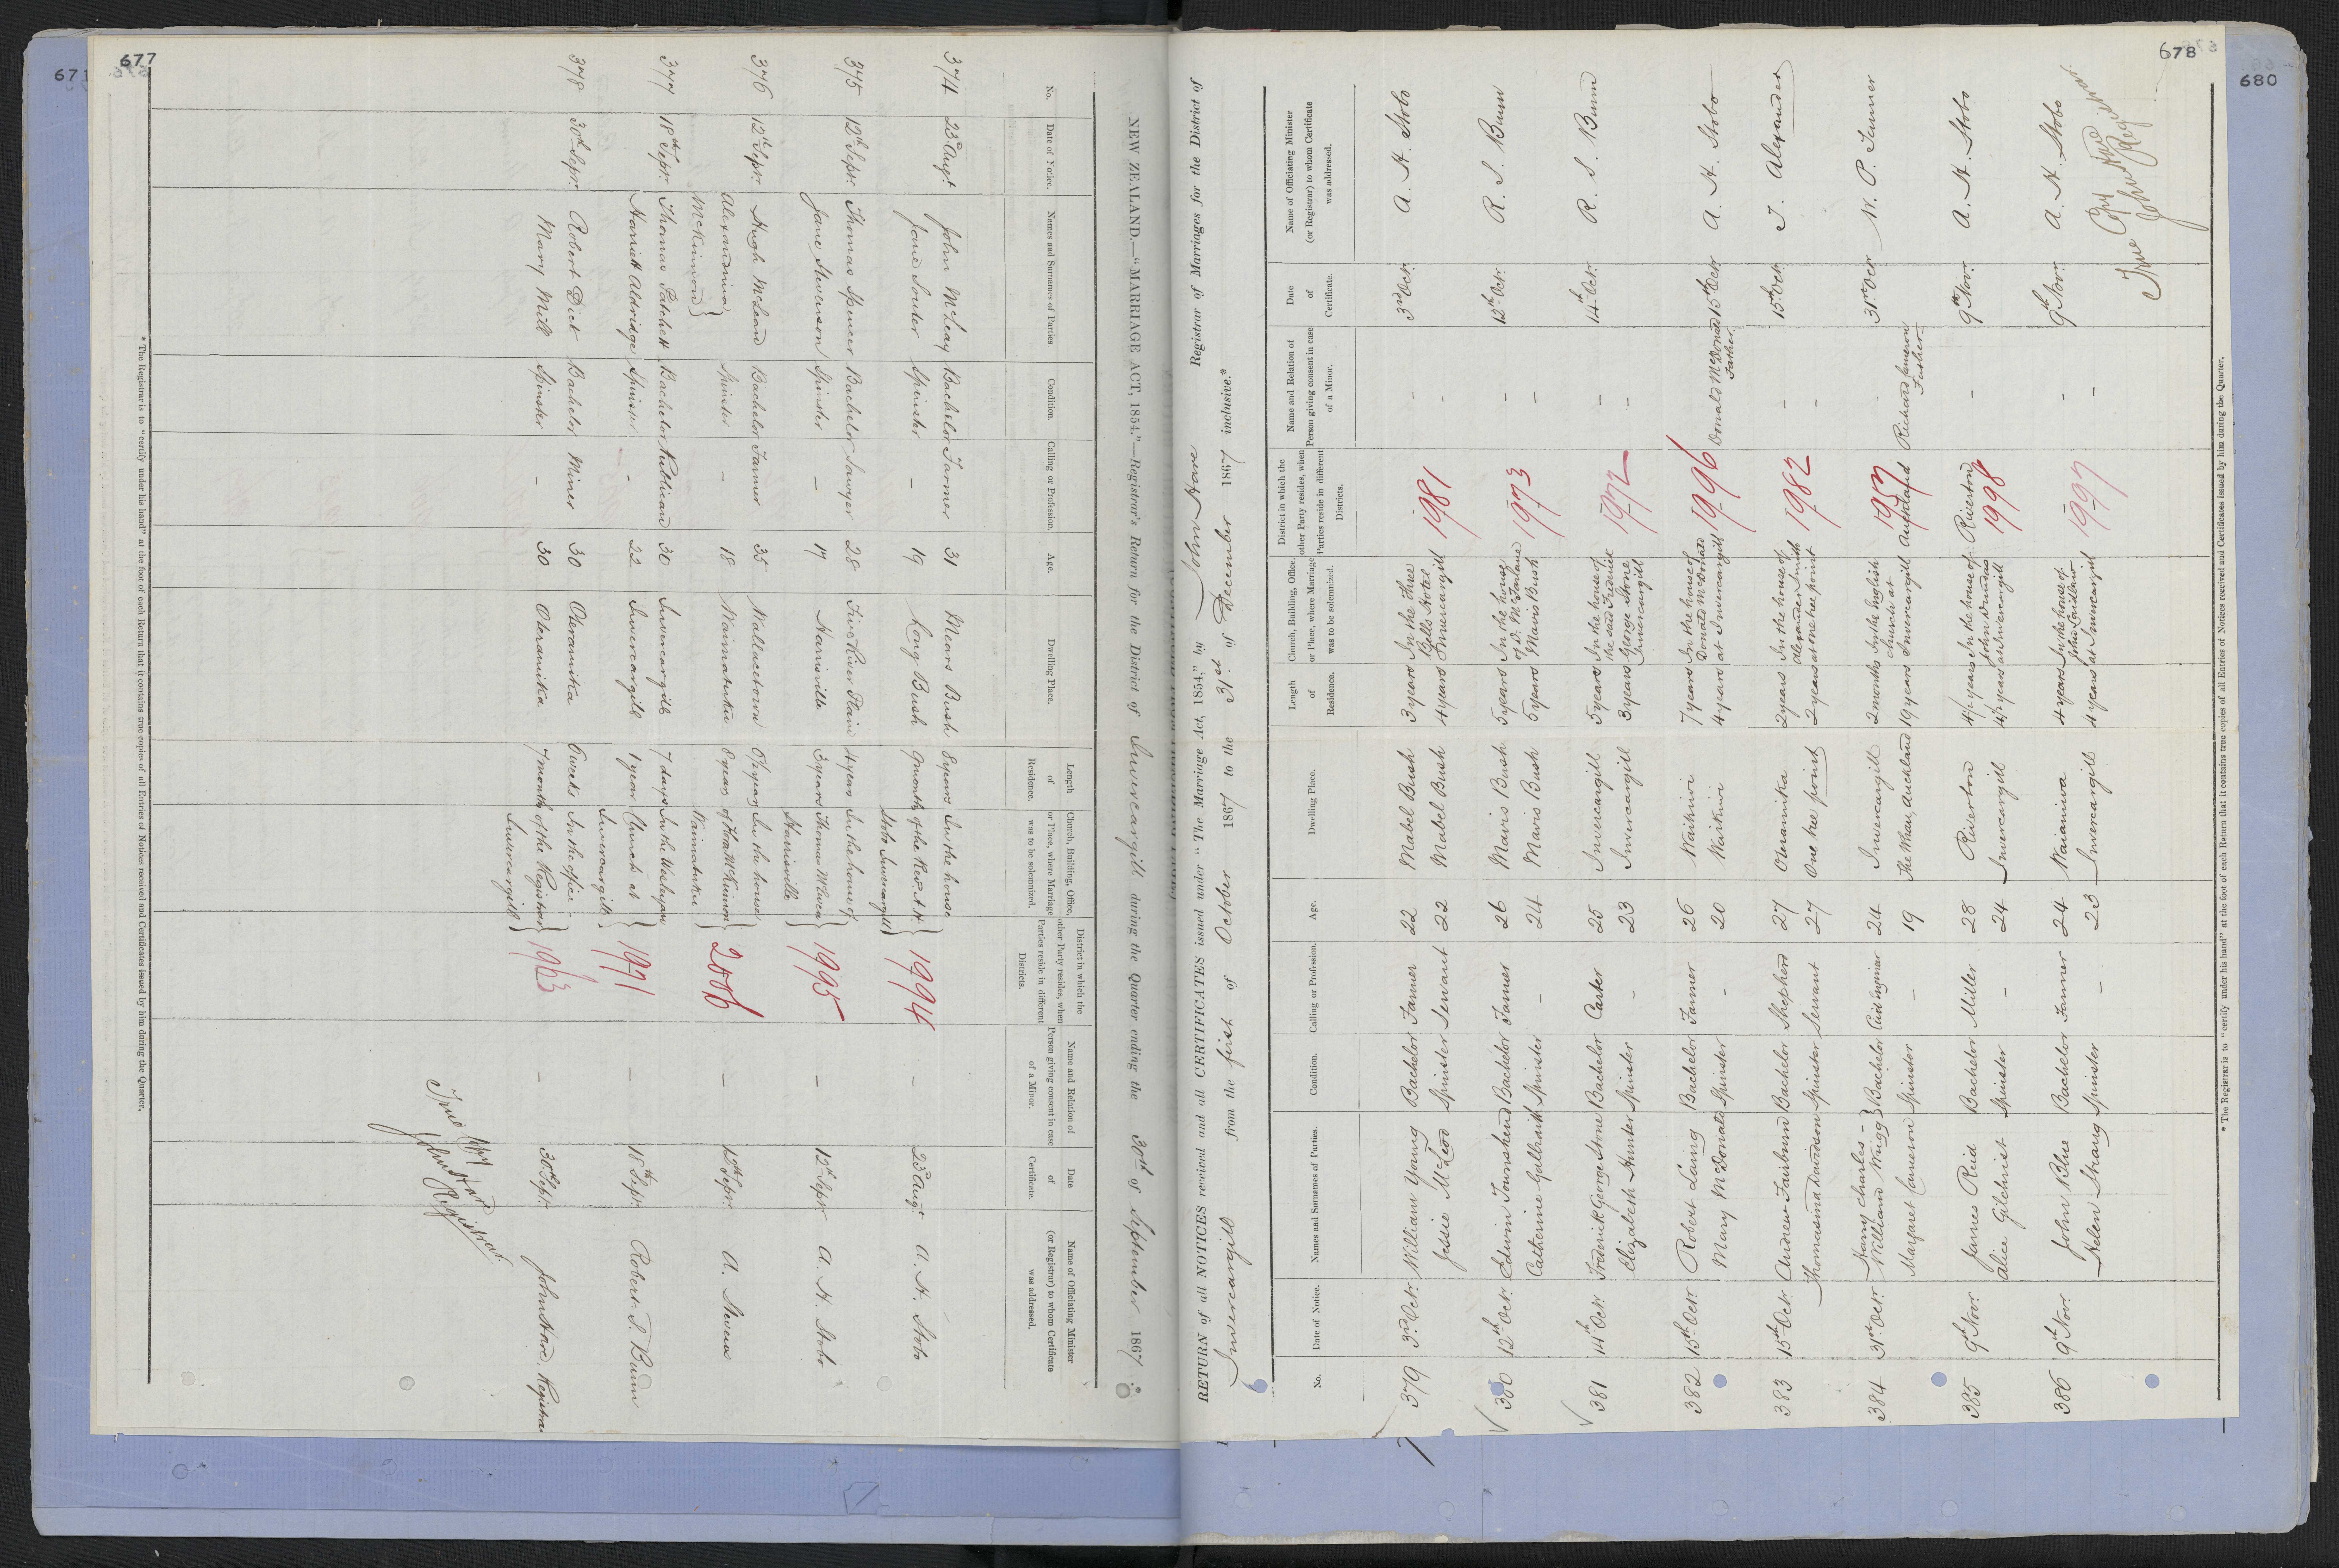 677
671
NEW ZEALAND.—"MARRIAGE ACT, 1854."—Registrar's Return for the District of Invercargill during the Quarter ending the 30th of September 1867.
No. Date of Notice. Names and Surnames of Parties. Condition. Calling or Profession. Age. Dwelling Place. Length of Residence. Church, Building, Office, or Place, where Marriage was to be solemnized. District in which the other Party resides, when Parties reside in different Districts. Name and Relation of Person giving consent in case of a Minor. Date of Certificate. Name of Officiating Minister (or Registrar) to whom Certificate was addressed.
374 23d Augt John McLeay Bachelor Farmer 31 Mears Bush 8 years In the house 1994 – 23d Augt A. H. Stobo
Jane Souter Spinster – 19 Long Bush 9 months of the Revd. A H
Stobo Invercargill
375 12th Sepr. Thomas Spencer Bachelor Sawyer 28 Five Rivers Plain 4 years In the house of 1995 – 12th Sepr. A. H. Stobo
Jane Stevenson Spinster – 17 Harrisville 3 years Thomas
Harrisville
376 12th Sepr. Hugh McLean Bachelor Farmer 35 Wallacetown 6½ years In the house 2006 – 12th Sepr. A. Stevens
Alexandrina Spinster – 18 Waimatuku 8 years of McKinnon
McKinnon Waimatuku
377 18th Sepr. Thomas Patchett Bachelor Publican 30 Invercargill 7 days In the Wesleyan 1971 – 18th Sepr. Robert S. Bunn
Harriett Aldridge Spinster - 22 Invercargill 1 year Church at
Invercargill
378 30th Sepr. Robert Dick Bachelor Miner 30 Oteramika 6 weeks In the office 1963 – 30th Sepr. John Hare, Registrar
Mary Mill Spinster – 30 Oteramika 7 months of the Registrar
Invercargill
True Copy
John Hare
Registrar
* The Registrar is to "certify under his hand" at the foot of each Return that it contains true copies of all Entries of Notices received and Certificates issued by him during the Quarter.
678
680
RETURN of all NOTICES received and all CERTIFICATES issued under "The Marriage Act, 1854," by John Hare Registrar of Marriages for the District of
Invercargill from the first of October 1867 to the 31st of December 1867 inclusive.*
No. Date of Notice. Names and Surnames of Parties. Condition. Calling or Profession. Age. Dwelling Place. Length of Residence. Church, Building, Office, or Place, where Marriage was to be solemnized. District in which the other Party resides, when Parties reside in different Districts. Name and Relation of Person giving consent in case of a Minor. Date of Certificate. Name of Officiating Minister (or Registrar) to whom Certificate was addressed.
379 3rd Octr. William Young Bachelor Farmer 22 Mabel Bush 3 years In the Three 1981 – 3rd Octr. A. H. Stobo
Jessie McLeod Spinster Servant 22 Mabel Bush 4 years Bells Hotel Invercargill –
380 12th Octr. Edwin Townshend Bachelor Farmer 26 Mavis Bush 5 years In the house 1973 – 12th Octr. R. S. Bunn
Catherine Galbraith Spinster – 24 Mavis Bush 5 years of D. McFarlane Mavis Bush –
381 14th Octr. Frederick George Stone Bachelor Carter 25 Invercargill 5 years In the house of 1972 – 14th Octr. R. S. Bunn
Elizabeth Hunter Spinster – 23 Invercargill 3 years the said Frederick George Stone Invercargill –
382 15th Octr. Robert Laing Bachelor Farmer 26 Waikiwi 7 years In the house of 1996 Donald McDonald 15th Octr. A. H. Stobo
Mary McDonald Spinster – 20 Waikiwi 4 years Donald McDonald at Invercargill Father
383 15th Octr. Andrew Fairburn Bachelor Shepherd 27 Oteramika 2 years In the house of 1982 – 15th Octr. J. Alexander
Thomasina Davidson Spinster Servant 27 One tree point 2 years Alexander Smith at One tree point –
384 31st Octr. Harry Charles William Bachelor Civil Engineer 24 Invercargill 2 months In the English 1957 - 31st Octr. W. P. Tanner
Margaret Cameron Spinster – 19 The Whau, Auckland 19 years Church at Invercargill Auckland Richard Cameron Father
385 9th Novr. James Reid Bachelor Miller 28 Riverton 4½ years In the house of Riverton 1998 – 9th Novr. A. H. Stobo
Alice Gilchrist Spinster – 24 Invercargill 4½ years at Invercargill
386 9th Novr. John Blue Bachelor Farmer 24 Waianiwa 4 years In the house of 1997 – 9th Novr. A. H. Stobo
Helen Strang Spinster – 23 Invercargill 4 years John Laidlaw at Invercargill –
True Copy
John Hare
Registrar
* The Registrar is to "certify under his hand" at the foot of each Return that it contains true copies of all Entries of Notices received and Certificates issued by him during the Quarter.